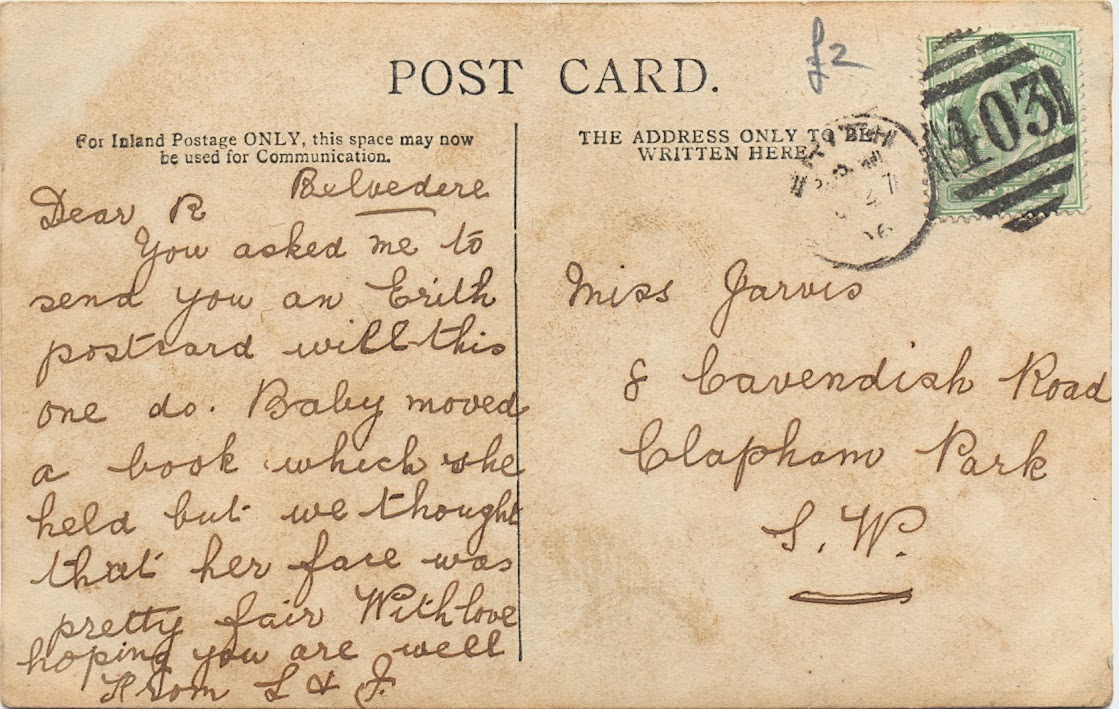 POST CARD.
£2
For Inland Postage ONLY, this space may now
be used for Communication.
THE ADDRESS ONLY TO BE
WRITTEN HERE
403
Belvedere
Dear R
You asked me to
send you an Erith
postcard will this
one do. Baby moved
a book which she
held but we thought
that her face was
pretty fair With love
hoping you are well
From L & J.
Miss Jarvis
8 Cavendish Road
Clapham Park
S. W.